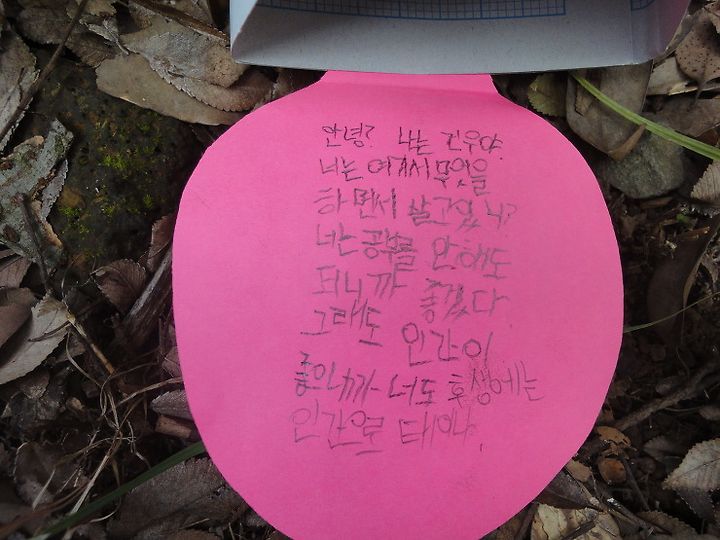 안녕? 나는 건우야.
너는 여기서 무엇을
하면서 살고있니?
너는 공부를 안해도
되니까 좋겠다
그래도 인간이
좋으니까 너도 후생에는
인간으로 태어나.